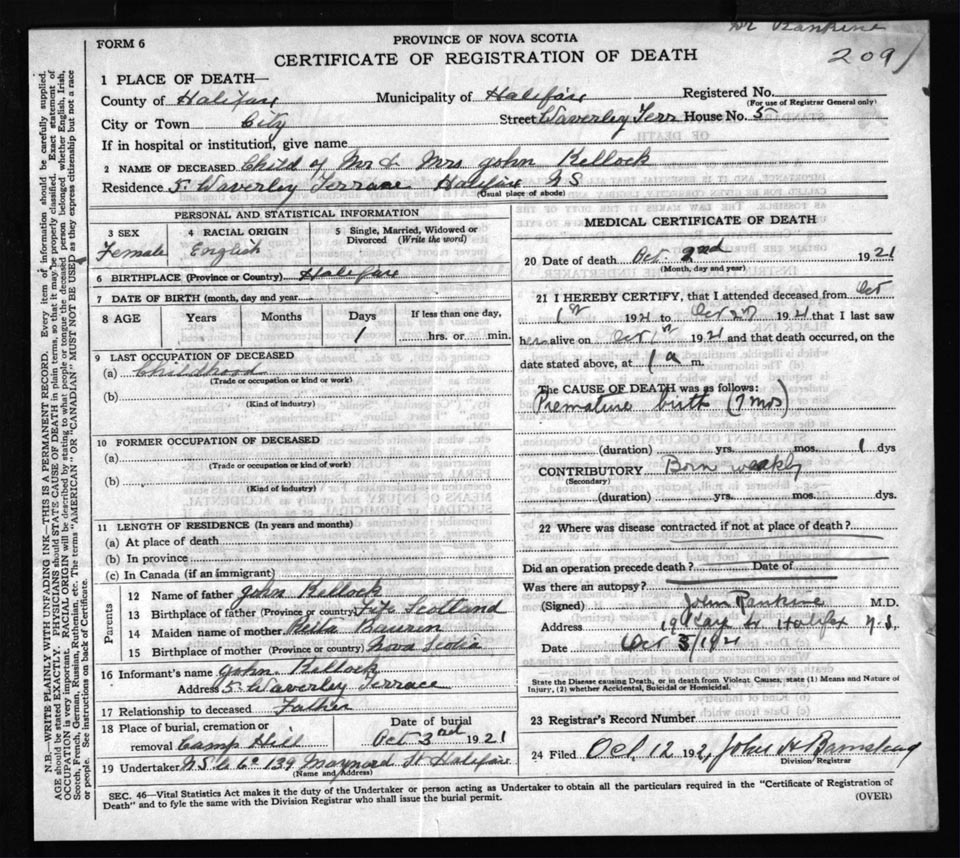 Dr Rankine
209
FORM 6
PROVINCE OF NOVA SCOTIA
CERTIFICATE OF REGISTRATION OF DEATH
1 PLACE OF DEATH—
County of Halifax Municipality of Halifax Registered No.
(For use of Registrar General only)
City or Town City Street Waverley Terr House No. 5
If in hospital or institution, give name
2 NAME OF DECEASED Child of Mr & Mrs John Kellock
Residence 5. Waverley Terrace Halifax NS
(Usual place of abode)
PERSONAL AND STATISTICAL INFORMATION
3 SEX 4 RACIAL ORIGIN 5 Single, Married, Widowed or Divorced (Write the word)
Female English
6 BIRTHPLACE (Province or Country) Halifax
7 DATE OF BIRTH (month, day and year
8 AGE Years Months Days If less than one day,
1 hrs. or min.
9 LAST OCCUPATION OF DECEASED
(a) Childhood
(Trade or occupation or kind or work)
(b)
(Kind of industry)
10 FORMER OCCUPATION OF DECEASED
(a)
(Trade or occupation or kind of work)
(b)
(Kind of industry)
11 LENGTH OF RESIDENCE (In years and months)
(a) At place of death
(b) In province
(c) In Canada (if an immigrant)
Parents
12 Name of father John Kellock
13 Birthplace of father (Province or country) Fife Scotland
14 Maiden name of mother
15 Birthplace of mother (Province or country) Nova Scotia
16 Informant's name John Kellock
Address 5. Waverley Terrace
17 Relationship to deceased Father
18 Place of burial, cremation or Date of burial
removal Camp Hill Oct 3rd 1921
19 Undertaker N S U Co 139 Maynard St Halifax
(Name and Address)
MEDICAL CERTIFICATE OF DEATH
20 Date of death Oct. 2nd 1921
(Month, day and year)
21 I HEREBY CERTIFY, that I attended deceased from Oct
1st 1921 to Oct 2nd 1921 that I last saw
her alive on Oct 1st 1921 and that death occurred, on the
date stated above, at 1 a m.
The CAUSE OF DEATH was as follows:
Premature birth (7 mos)
(duration) yrs. mos. 1 dys
CONTRIBUTORY Born weakly
(Secondary)
(duration) yrs. mos. dys.
22 Where was disease contracted if not at place of death?
Did an operation precede death? Date of
Was there an autopsy?
(Signed) John Rankine M.D.
Address Halifax N.S.
Date Oct 3/1921
State the Disease causing Death, or in death from Violent Causes, state (1) Means and Nature of
Injury, (2) whether Accidental, Suicidal or Homicidal.
23 Registrar's Record Number
24 Filed Oct. 12 192 John H
Division Registrar
SEC. 46—Vital Statistics Act makes it the duty of the Undertaker or person acting as Undertaker to obtain all the particulars required in the "Certificate of Registration of
Death" and to fyle the same with the Division Registrar who shall issue the burial permit.
(OVER)
N.B.—WRITE PLAINLY WITH UNFADING INK—THIS IS A PERMANENT RECORD. Every item of information should be carefully supplied.
AGE should be stated EXACTLY. PHYSICIANS should STATE CAUSE OF DEATH in plain terms, so that it may be properly classified. Exact statement of
OCCUPATION is very important. RACIAL ORIGIN will be described by stating to what people or tongue the deceased person belonged, whether English, Irish,
Scotch, French, German, Russian, Ruthenian, etc. The terms "AMERICAN" OR "CANADIAN" MUST NOT BE USED as they express citizenship but not a race
or people. See instructions on back of Certificate.